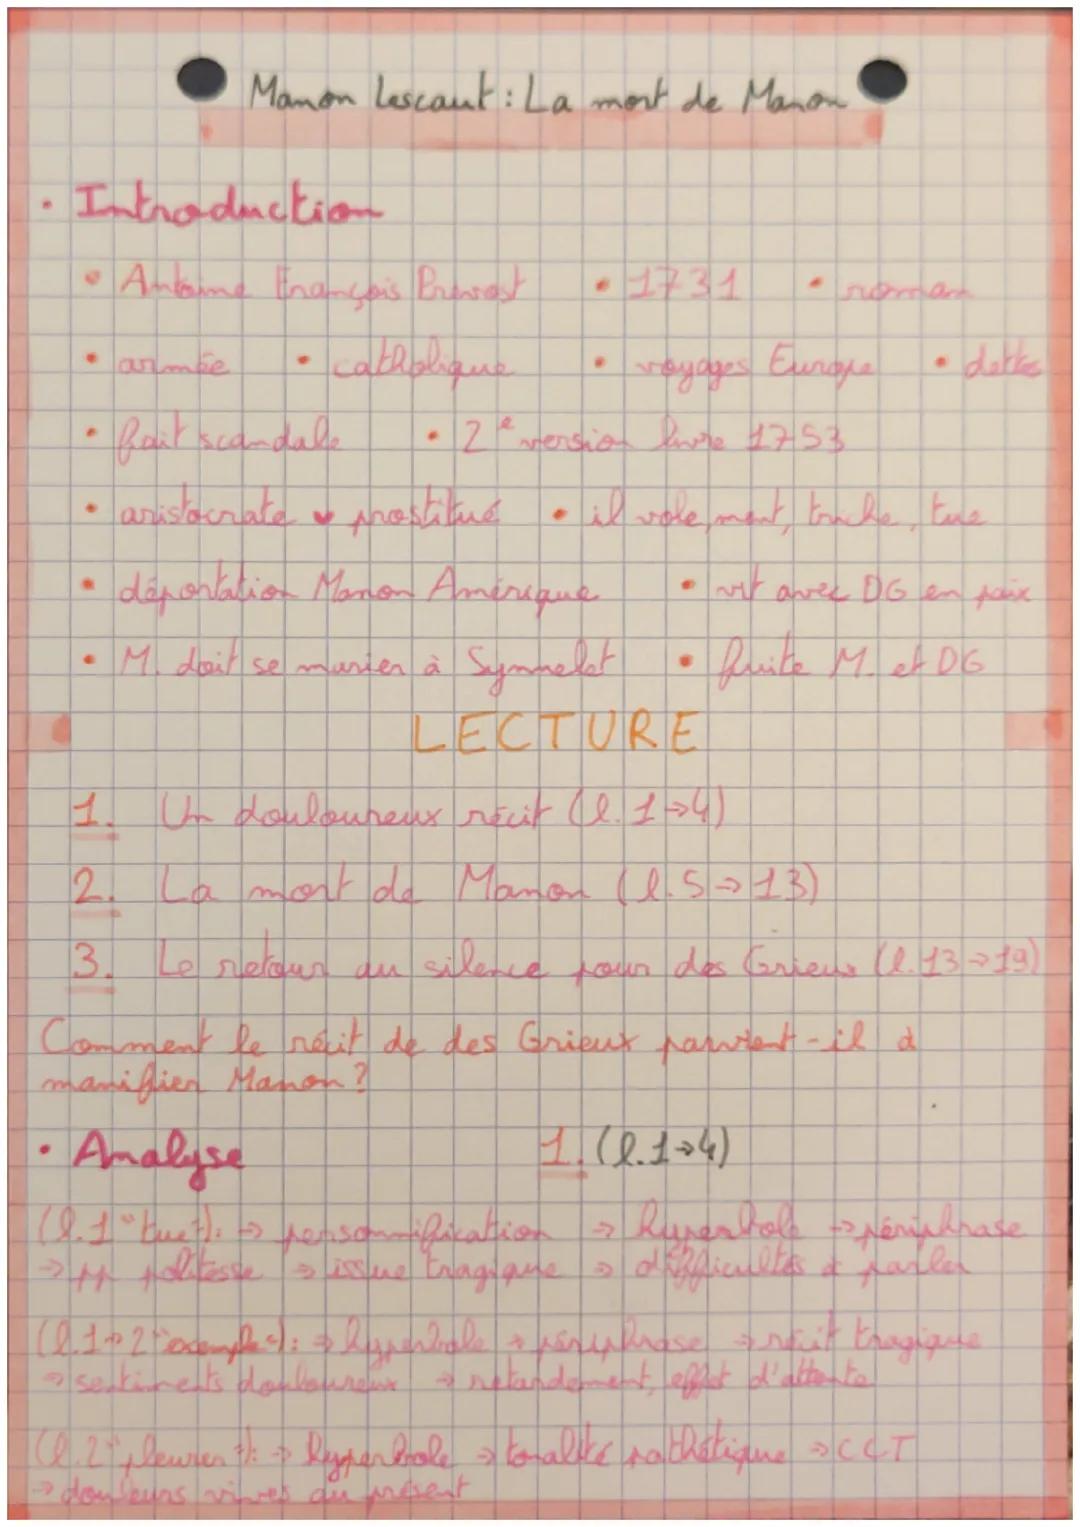 Manon Lescaut : La mort de Manon
• Introduction
• Antoine François Prévost • 1731 • roman
• armée • catholique • voyages Europe • dettes
• fait scandale • 2e version livre 1753
• aristocrate ♥ prostitué • il vole, ment, triche, tue
• déportation Manon Amérique • vit avec DG en paix
• M. doit se marier à Synnelet • fuite M. et DG
LECTURE
1. Un douloureux récit (l. 1→4)
2. La mort de Manon (l. 5→13)
3. Le retour au silence pour des Grieux (l. 13→19)
Comment le récit de des Grieux parvient-il à
manifier Manon ?
• Analyse 1. (l. 1→4)
(l. 1 "tue"): → personnification → hyperbole → périphrase
→ pp politesse → issue tragique → difficultés à parler
(l. 1→2 "exemple"): → hyperbole → périphrase → récit tragique
→ sentiments douloureux → retardement, effet d'attente
(l. 2 "pleurer"): → hyperbole → tonalité pathétique → CCT
→ douleurs vives au présent